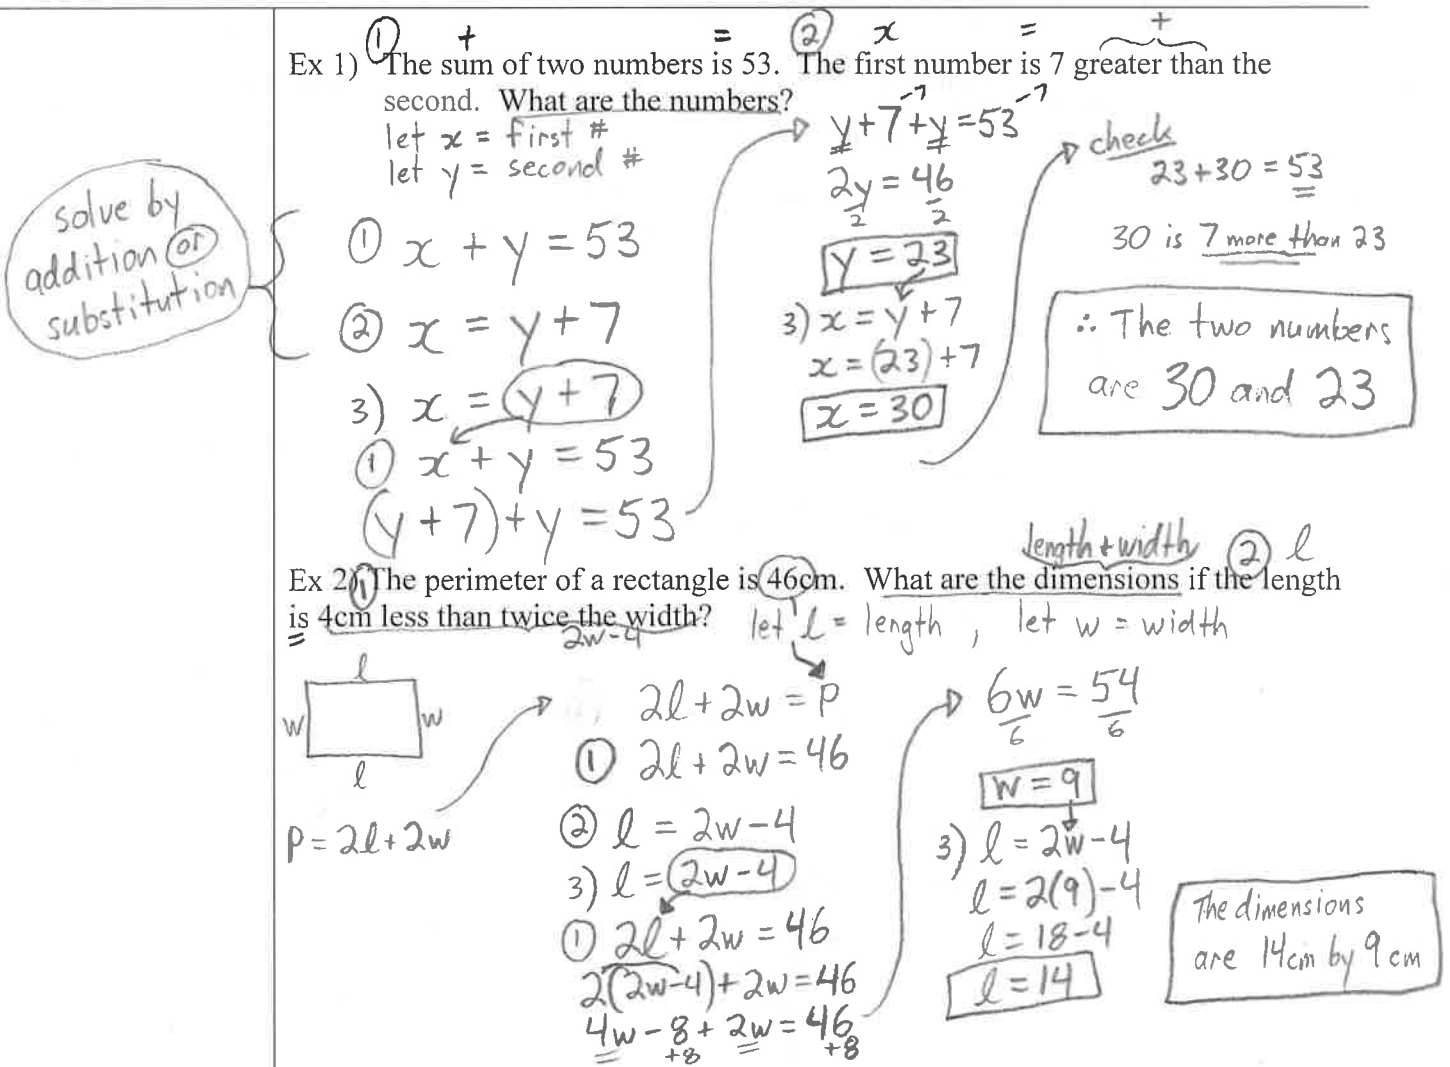 ① + = ② x = +
Ex 1) The sum of two numbers is 53. The first number is 7 greater than the
second. What are the numbers?
let x = first #
let y = second #
solve by
addition or
substitution
① x + y = 53
② x = y + 7
3) x = y + 7
① x + y = 53
(y + 7) + y = 53
-7 -7
y + 7 + y = 53
2y = 46
2 2
y = 23
3) x = y + 7
x = (23) + 7
x = 30
check
23 + 30 = 53
30 is 7 more than 23
∴ The two numbers
are 30 and 23
length + width ② l
Ex 2) ① The perimeter of a rectangle is 46cm. What are the dimensions if the length
is 4cm less than twice the width?
= 2w - 4
let l = length , let w = width
l
w w
l
P = 2l + 2w
2l + 2w = P
① 2l + 2w = 46
② l = 2w - 4
3) l = 2w - 4
① 2l + 2w = 46
2(2w - 4) + 2w = 46
4w - 8 + 2w = 46
+8 +8
6w = 54
6 6
w = 9
3) l = 2w - 4
l = 2(9) - 4
l = 18 - 4
l = 14
The dimensions
are 14cm by 9cm